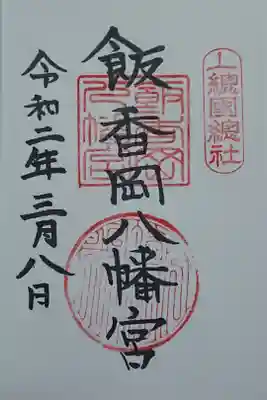 上總國總社
飯香岡八幡宮
令和二年三月八日